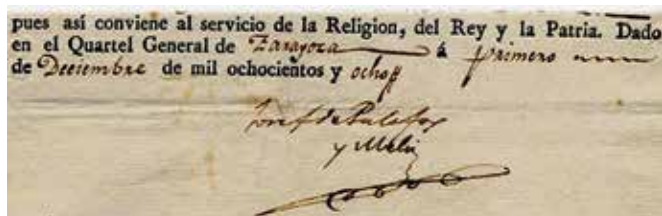 pues así conviene al servicio de la Religion, del Rey y la Patria. Dado
en el Quartel General de Zaragoza á primero
de Deciembre de mil ochocientos y ocho
Josef de Palafox
y Melci